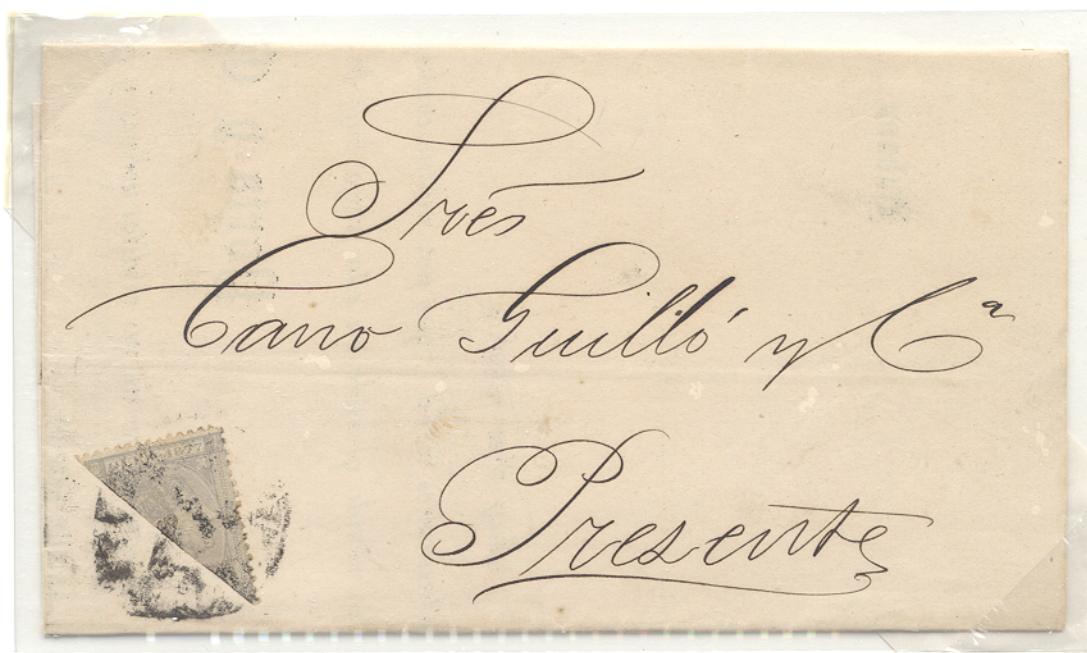 Sres
Cano Guilló y Cª
Presente
1877